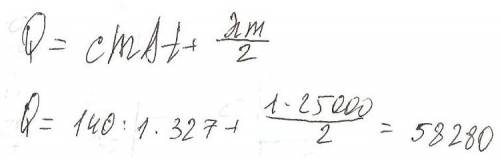 Q = cmΔt + λm/2
Q = 140 · 1 · 327 + 1 · 25000/2 = 58280